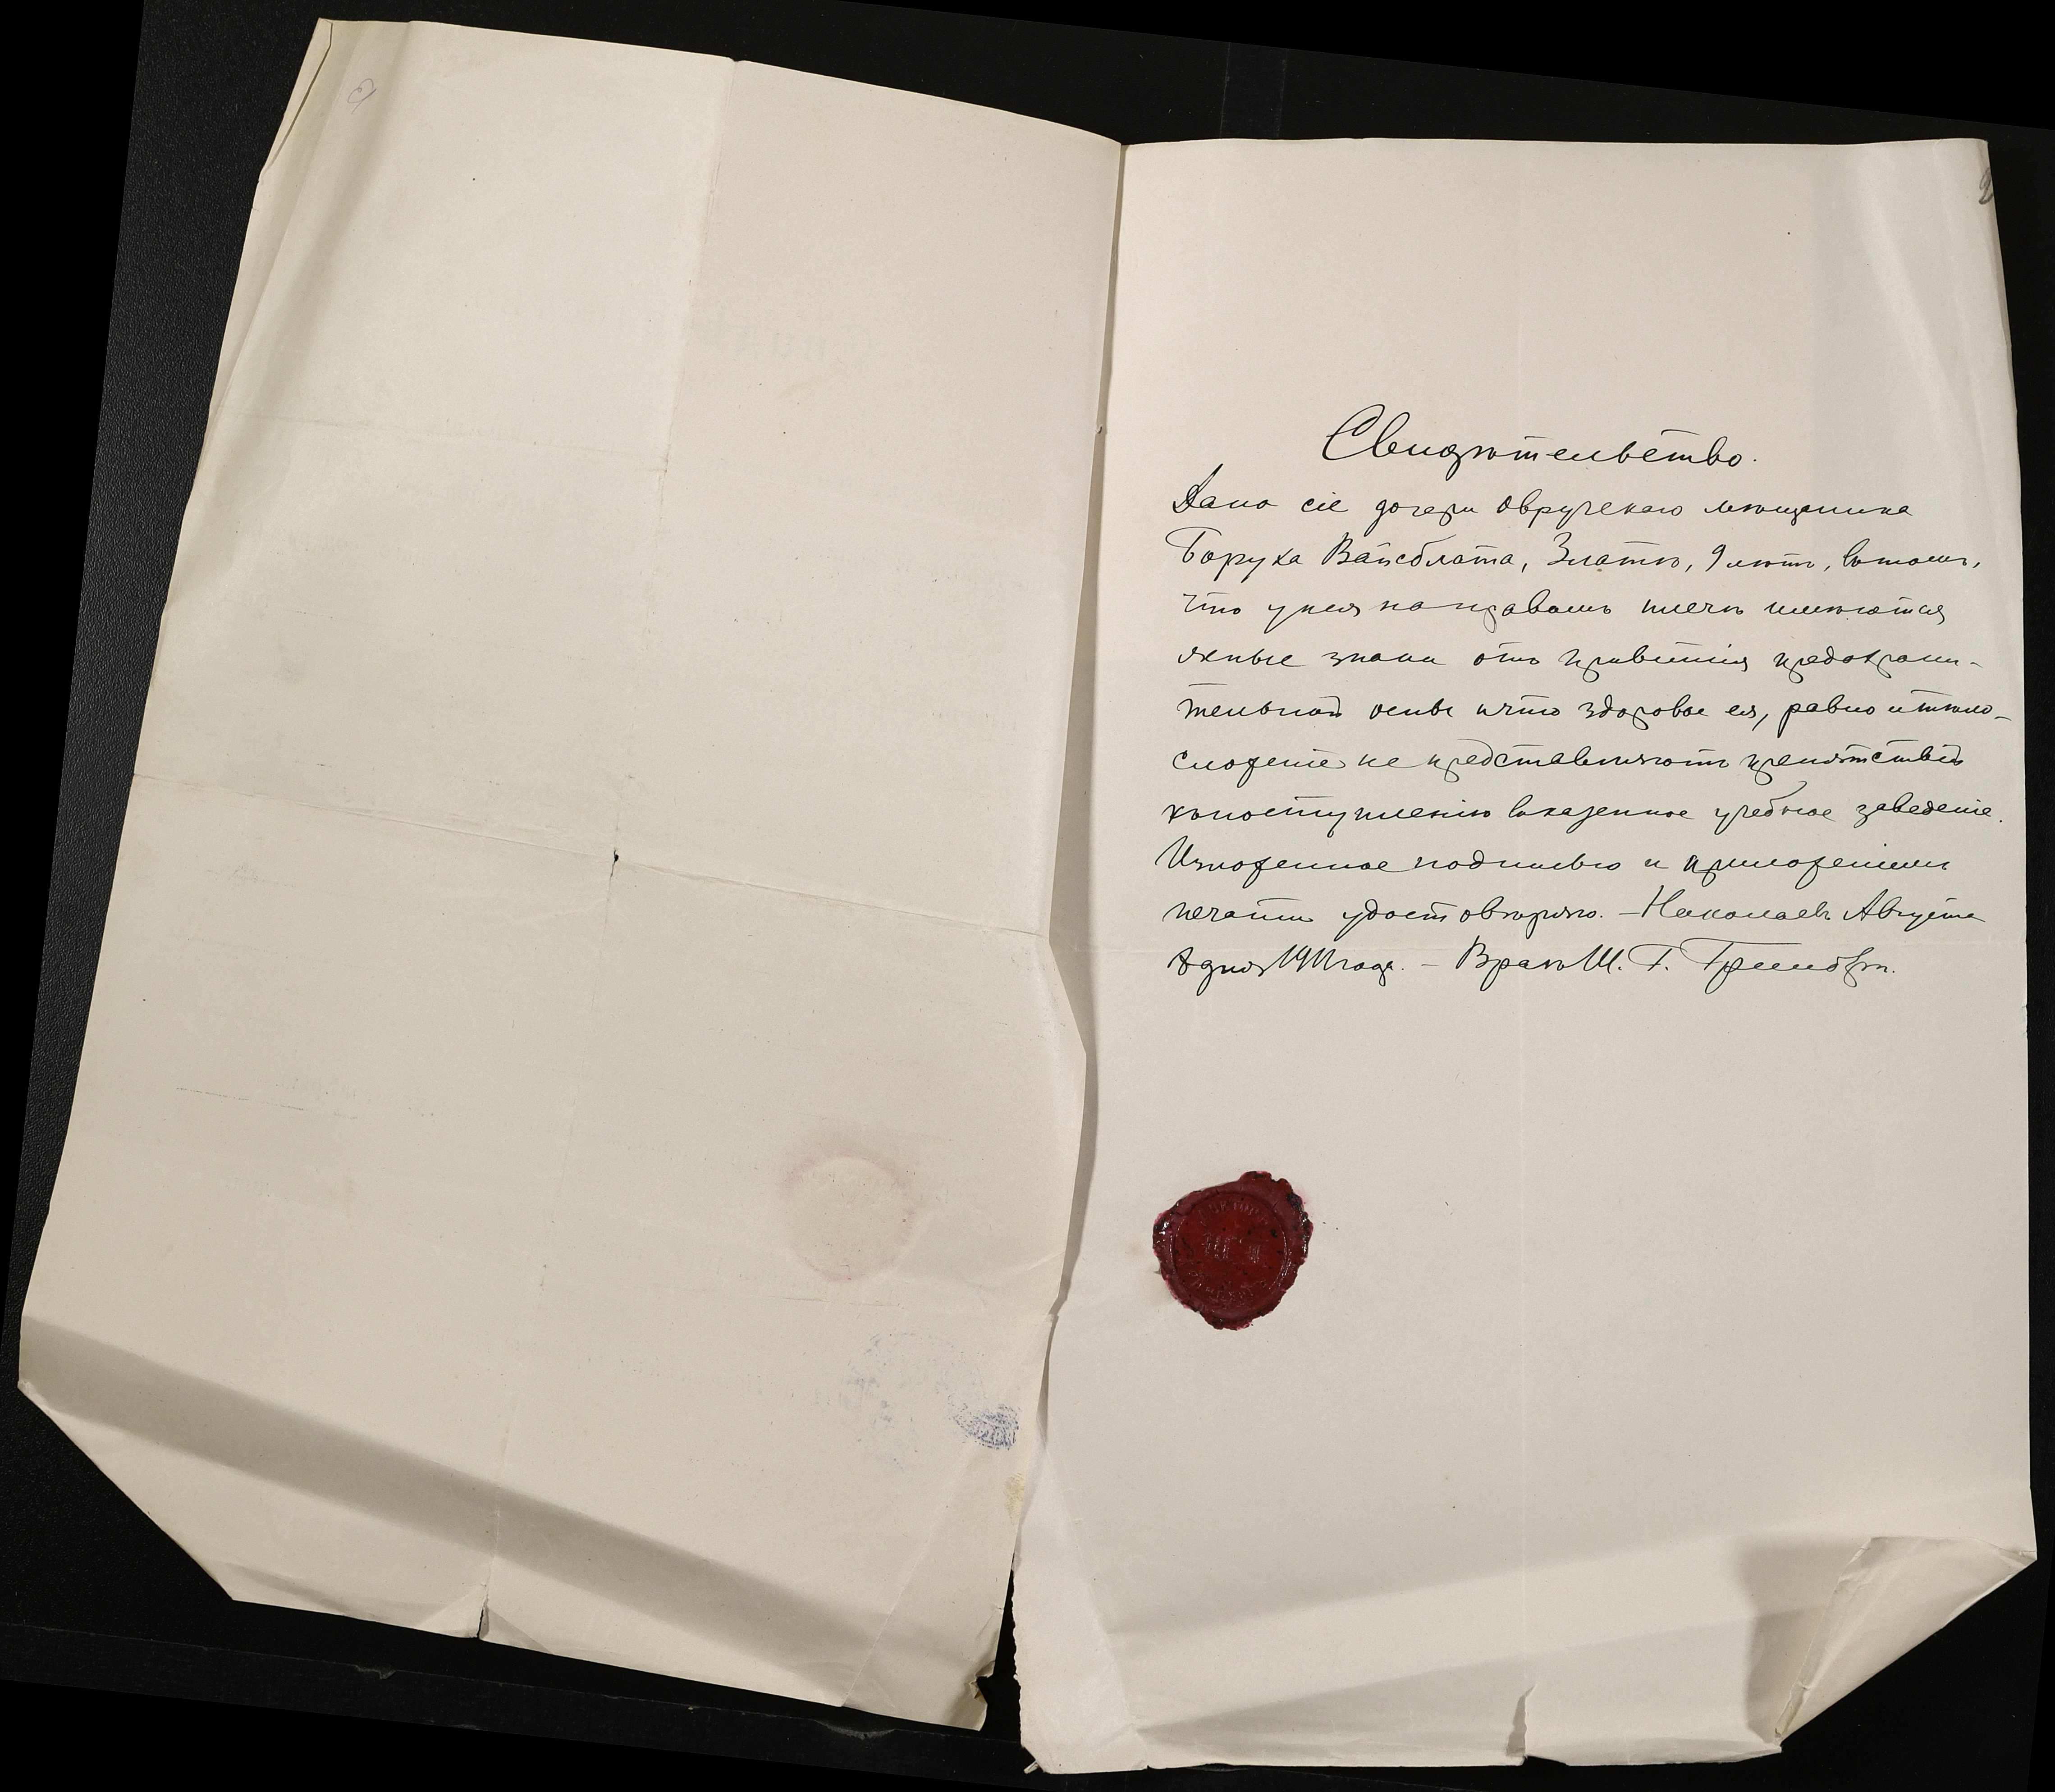 2
Свидѣтельство.
Дано сіе дочери овручскаго мѣщанина
Боруха Вайсблата, Златѣ, 9 лѣтъ, въ томъ,
что у нея на правомъ плечѣ имѣются
ясные знаки отъ привитія предохрани-
тельной оспы и что здоровье ея, равно и тѣло-
сложеніе не представляютъ препятствій
къ поступленію въ казенное учебное заведеніе.
Изложенное подписью и приложеніемъ
печати удостовѣряю. – Николаевъ Августа
8 дня 1911 года. – Врачъ Ш. Г.